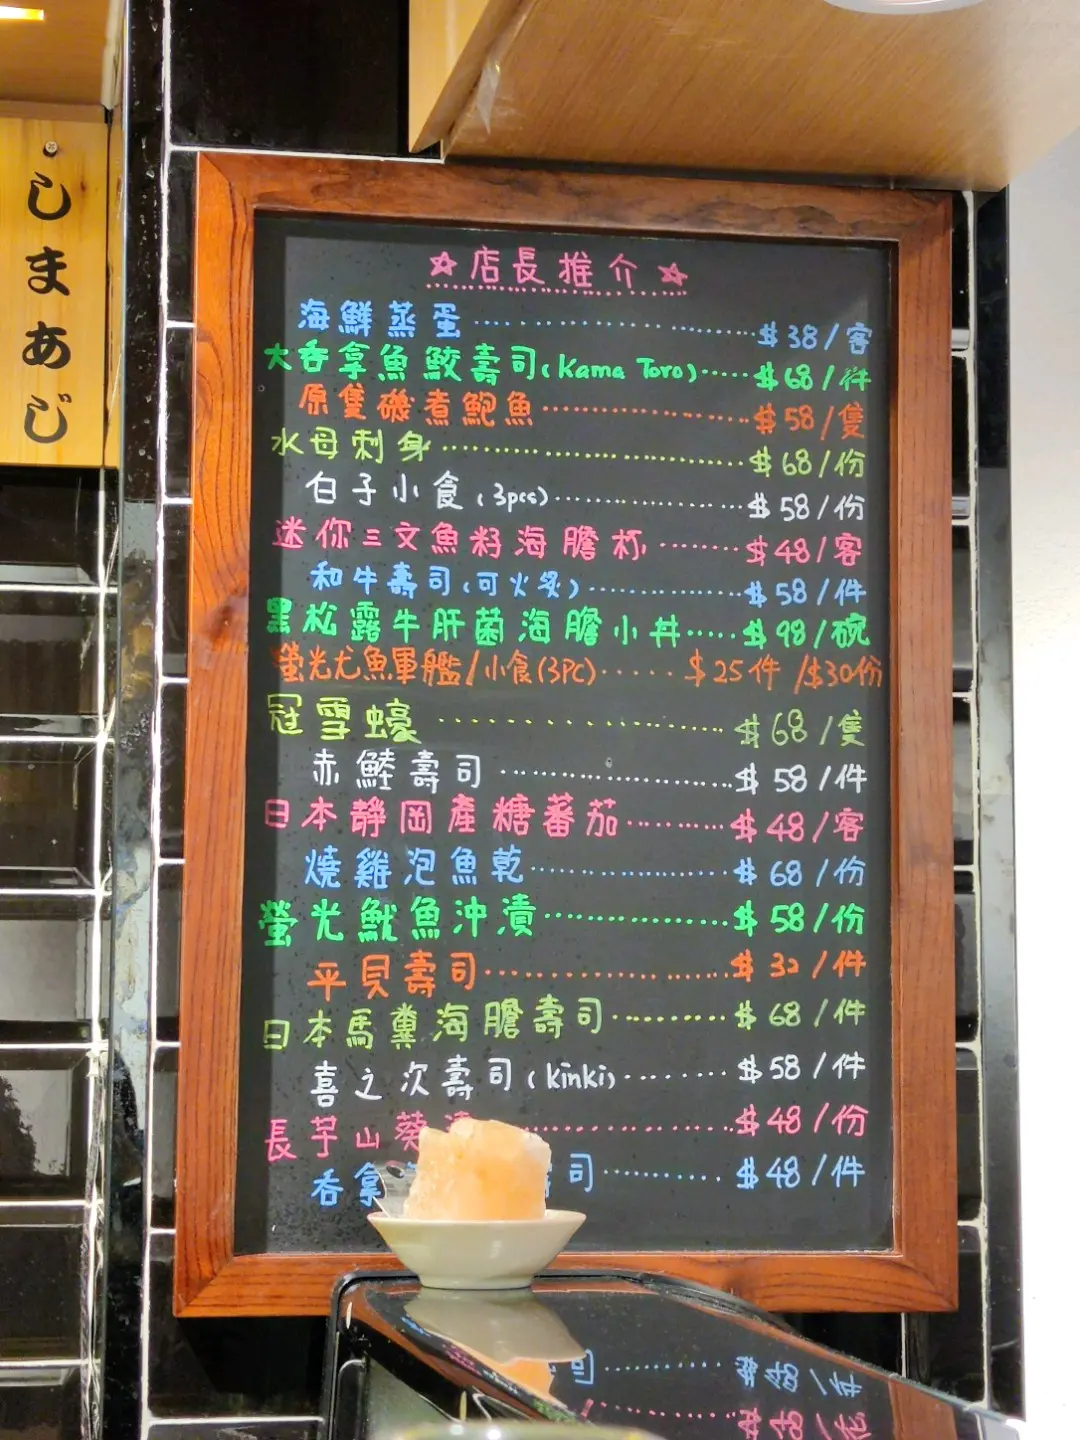 しまあじ
☆店長推介☆
海鮮蒸蛋 $38/客
大吞拿魚鮫壽司(Kama Toro) $68/件
原隻磯煮鮑魚 $58/隻
水母刺身 $68/份
白子小食(3pcs) $58/份
迷你三文魚籽海膽杯 $48/客
和牛壽司(可火炙) $58/件
黑松露牛肝菌海膽小丼 $98/碗
螢光尤魚軍艦/小食(3PC) $25件/$30份
冠雪蠔 $68/隻
赤鯥壽司 $58/件
日本靜岡產糖蕃茄 $48/客
燒雞泡魚乾 $68/份
螢光魷魚沖漬 $58/份
平貝壽司 $32/件
日本馬糞海膽壽司 $68/件
喜之次壽司(kinki) $58/件
長芋山葵漬 $48/份
吞拿 司 $48/件